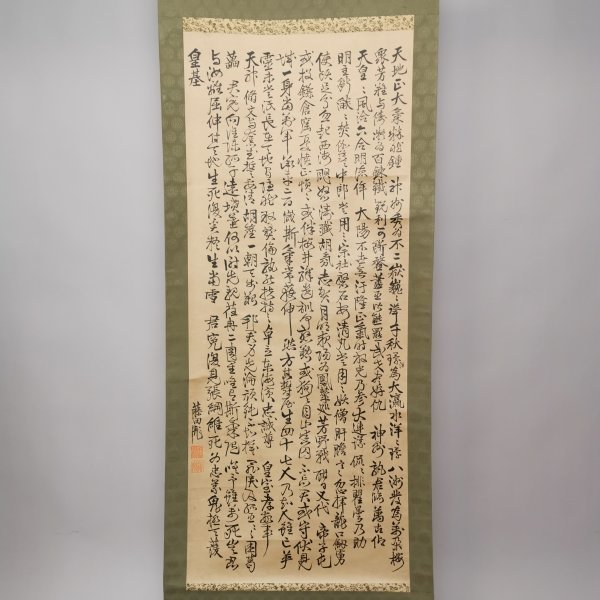 天地正大氣粋然鍾 神州秀為不二嶽巍々聳千秋注為大瀛水洋々環八洲發為萬朶桜
衆芳難与儔凝為百錬鐵鋭利可断鍪藎臣皆熊羆武夫盡好仇 神州孰君臨萬古仰
天皇々風洽六合明徳侔大陽不世無汚隆正氣時放光乃参大連議侃々排瞿曇乃助
明主断燄々焚伽藍中郎嘗用之宗社磐石安清丸嘗用之妖僧肝膽寒忽揮龍口劔虜
使頭足分忽起西海颶怒濤殲胡氛志賀月明夜陽為鳳輦巡芳野戰酣日又代 帝子屯
或投鎌倉窟憂憤正愪々或伴桜井驛遺訓何慇懃或殉天目山幽囚不忘君或守伏見
城一身当萬軍承平二百歳斯氣常獲伸然方其鬱屈生四十七人乃知人雖亡英
霊未嘗泯長在天地間隠然叙彝倫孰能扶持之卓立東海濱忠誠尊 皇室孝敬事
天神脩文与奮武誓欲清胡塵一朝天歩艱邦君身先淪頑鈍不知機罪戻及孤臣々々困葛
藟 君冤向誰陳孤子遠墳墓何以謝先親荏苒二周星唯有斯氣随嗟予雖萬死豈忍
与汝離屈伸付天地生死復奚疑生當雪 君冤復見張綱維死為忠義鬼極天護
皇基
藤田彪